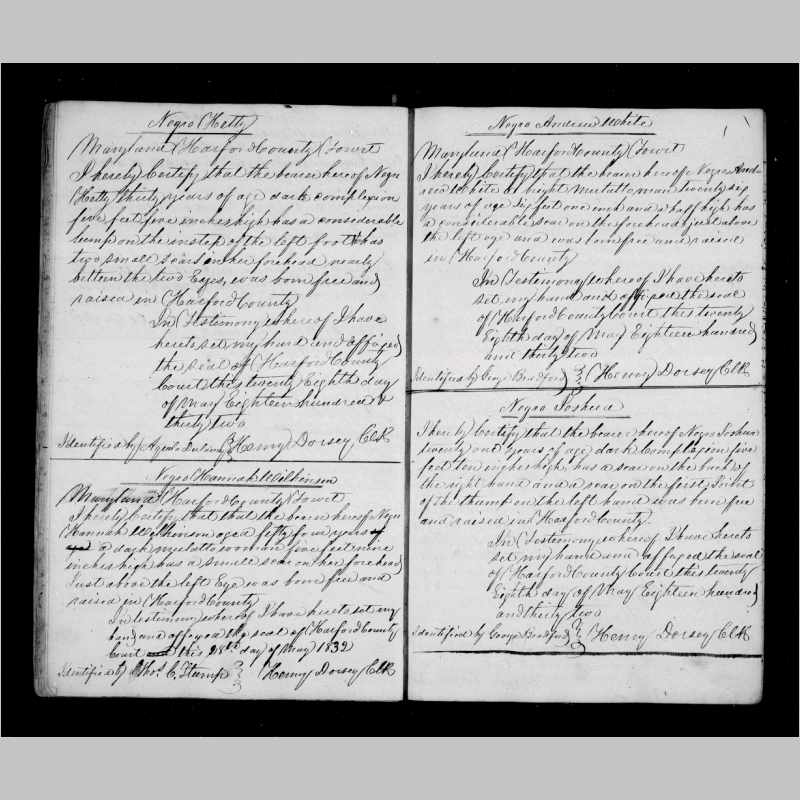 Negro Hetty
Maryland Harford County Towit
I hereby Certify that the bearer hereof Negro
Hetty thirty years of age dark complexion
five feet five inches high has a considerable
lump on the instep of the left foot & has
two small scars on her forehead nearly
between the two Eyes, was born free and
raised in Harford County
In Testimony whereof I have
hereto set my hand and affixed
the seal of Harford County
Court this twenty Eighth day
of May Eighteen hundred &
thirty two
Identified by Henry Dorsey Clk
Negro Hannah Wilkinson
Maryland Harford County Towit
I hereby Certify that that the bearer hereof Negro
Hannah Wilkinson aged fifty four years
a dark mulatto woman five feet nine
inches high has a small scar on her forehead
Just above the left Eye was born free and
raised in Harford County
In testimony whereof I have hereto set my
hand and affixed the seal of Harford County
Court this 28th day of May 1832
Identified by Thos. C. Stump Henry Dorsey Clk
Negro Andrew White
Maryland Harford County Towit
I hereby Certify that the bearer hereof Negro And-
rew White a bright Mulatto man twenty six
years of age Six feet one inch and a half high has
a considerable scar on the forehead just above
the left eye and was born free and raised
in Harford County
In Testimony whereof I have hereto
set my hand and affixed the seal
of Harford County Court this twenty
Eighth day of May Eighteen hundred
and thirty two
Identified by George Bradford Henry Dorsey Clk
Negro Joshua
I hereby Certify that the bearer hereof Negro Joshua
twenty one years of age dark Complexion five
feet ten inches high, has a scar on the back of
the right hand and a scar on the first Joint
of the thumb on the left hand was born free
and raised in Harford County.
In Testimony whereof I have hereto
set my hand and affixed the seal
of Harford County Court this twenty
Eighth day of May Eighteen hundred
and thirty two
Identified by George Bradford Henry Dorsey Clk